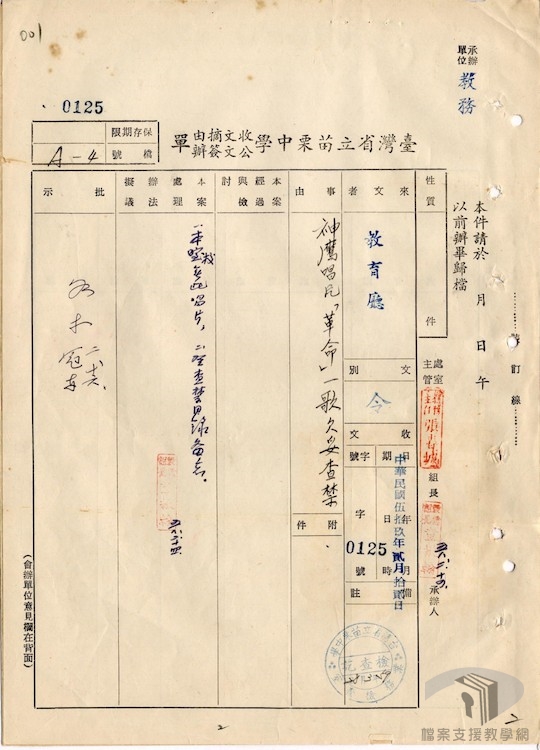 001
0125
保存期限
檔號
A-4
臺灣省立苗栗中學收文摘由
公文簽辦單
承辦單位
教務
本件請於 月 日 午
以前辦畢歸檔
裝訂線
性質
件
來文者
教育廳
文別
令
收文
日期
字號
中華民國伍拾玖年貳月拾貳日
年 月 日 時
字
0125
號
備註
事由
神鷹唱片「革命」一歌欠妥查禁
附件
本案經過與檢討
本案處理辦法擬議
一、本校無此唱片，
批示
處室主管
組長
承辦人
檢查訖
(會辦單位意見欄在背面)
2
檔案支援教學網